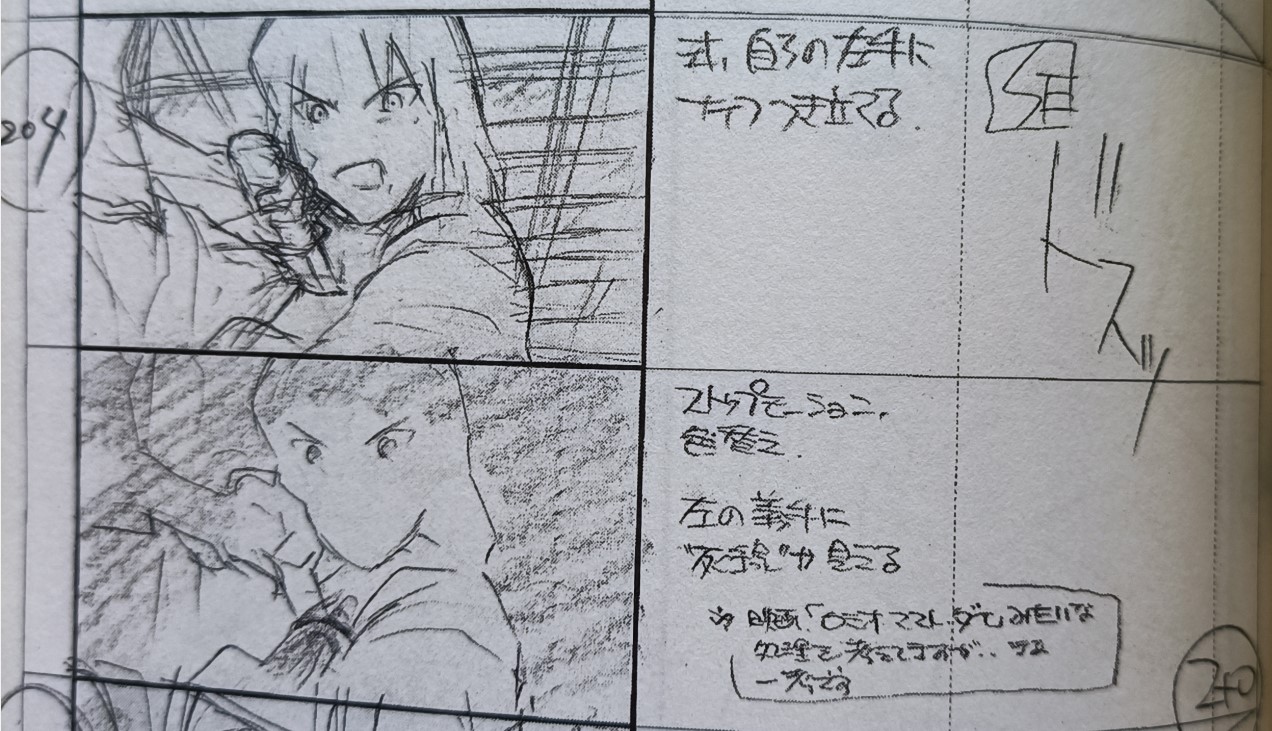 204
式、自らの左手に
ナイフつき立てる.
SE
ドスッ
ストップモーション、
色替え.
左の義手に
"死線"が見える
※映画「ロミオマストダイ」みたいな
処理で考えてますが‥
一考です
240